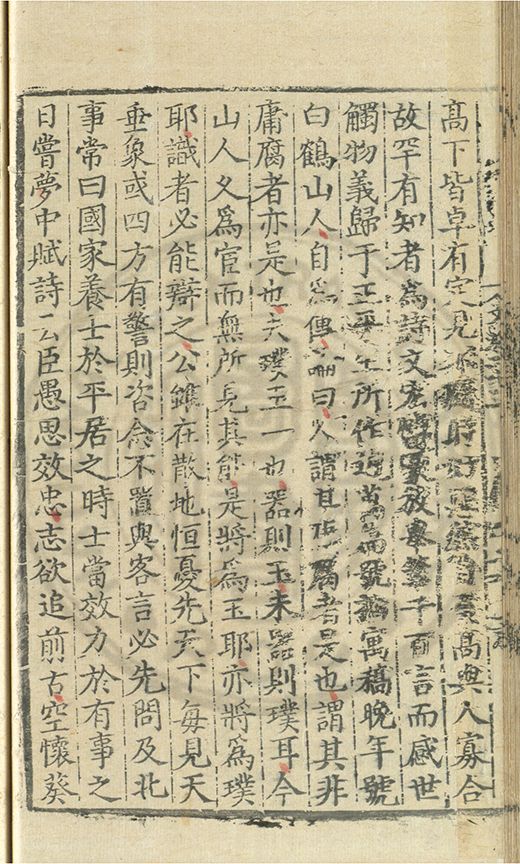 高下皆卓有定見不 時好 高與人寡合
故罕有知者為詩文宏 豪放 千百言而感世
觸物義歸于正平生所作 萬 號 寓稿晚年號
白鶴山人自為傳 曰人謂其 者是也謂其非
庸腐者亦是也夫璞玉一也器則玉未器則璞耳今
山人久爲官而無所見其能是將爲玉耶亦將爲璞
耶識者必能辯之公雖在散地恒憂先天下每見天
垂象或四方有警則咨念不置與客言必先問及北
事常曰國家養士於平居之時士當效力於有事之
日嘗夢中賦詩云臣愚思效忠志欲追前古空懷葵